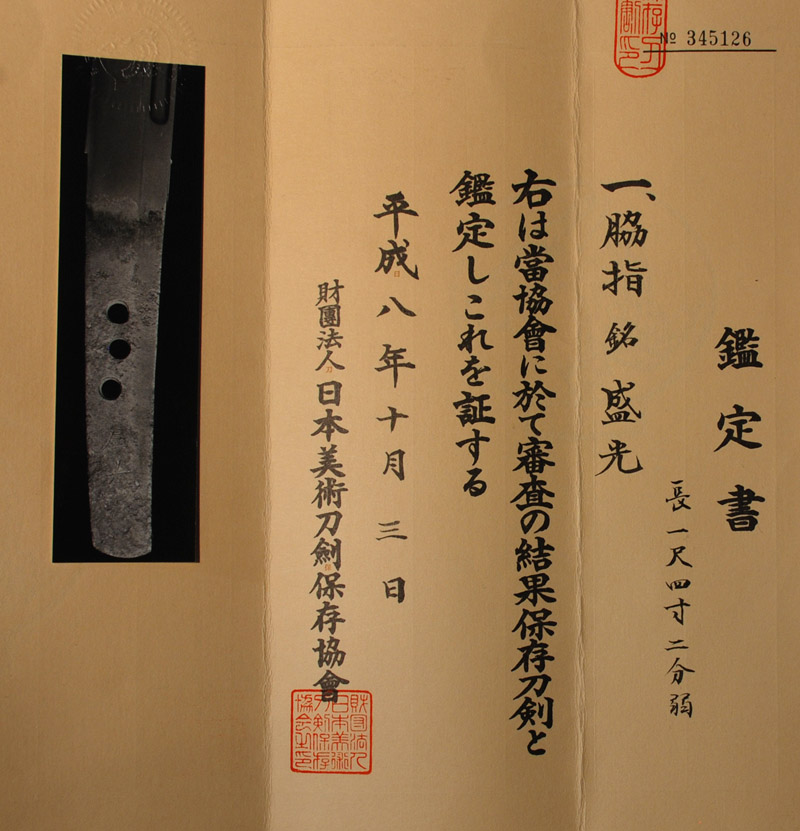 № 345126
鑑定書
一、脇指 銘 盛光
長一尺四寸二分弱
右は當協會に於て審査の結果保存刀剣と
鑑定しこれを証する
平成八年十月三日
財團法人日本美術刀劍保存協會
財団法人
日本美術
刀剣保存
協会之印